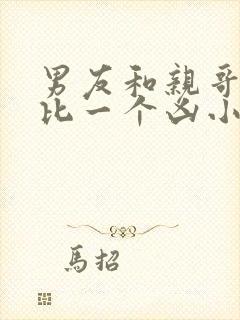 男友和亲哥
比一个凶小
馬招